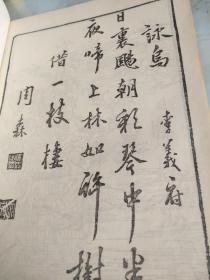 詠烏 李義府
日裏颺朝彩琴中半
夜啼上林如許樹
借一枝棲
周森